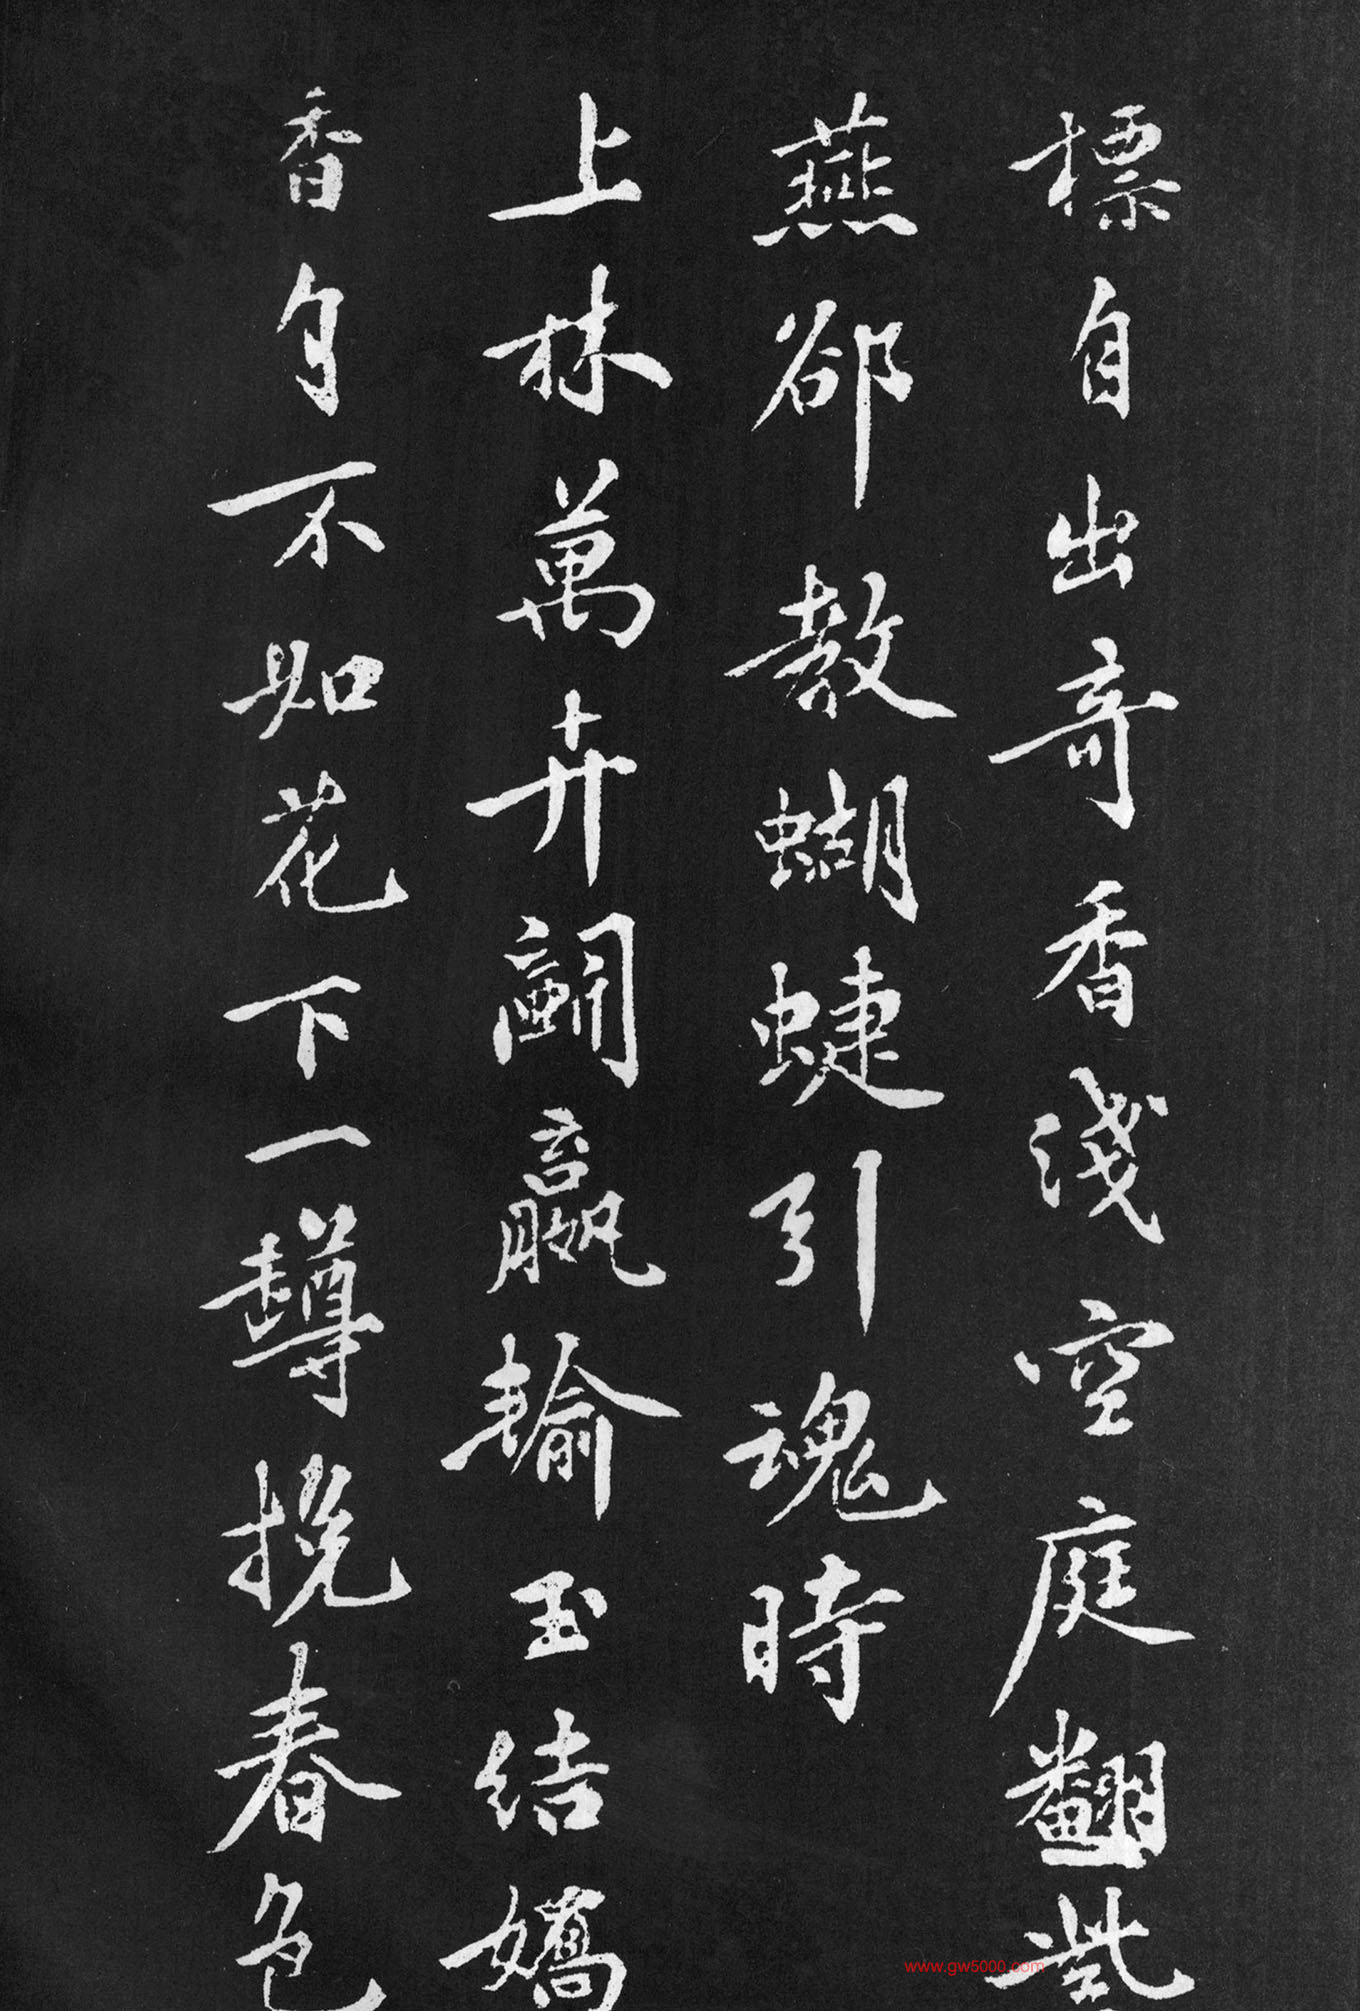 標自出奇香淺空庭翻紫
燕郤教蝴蜨引魂時
上林萬卉鬭贏輸玉結嬌
香自不如花下一罇挽春色
www.gw5000.com